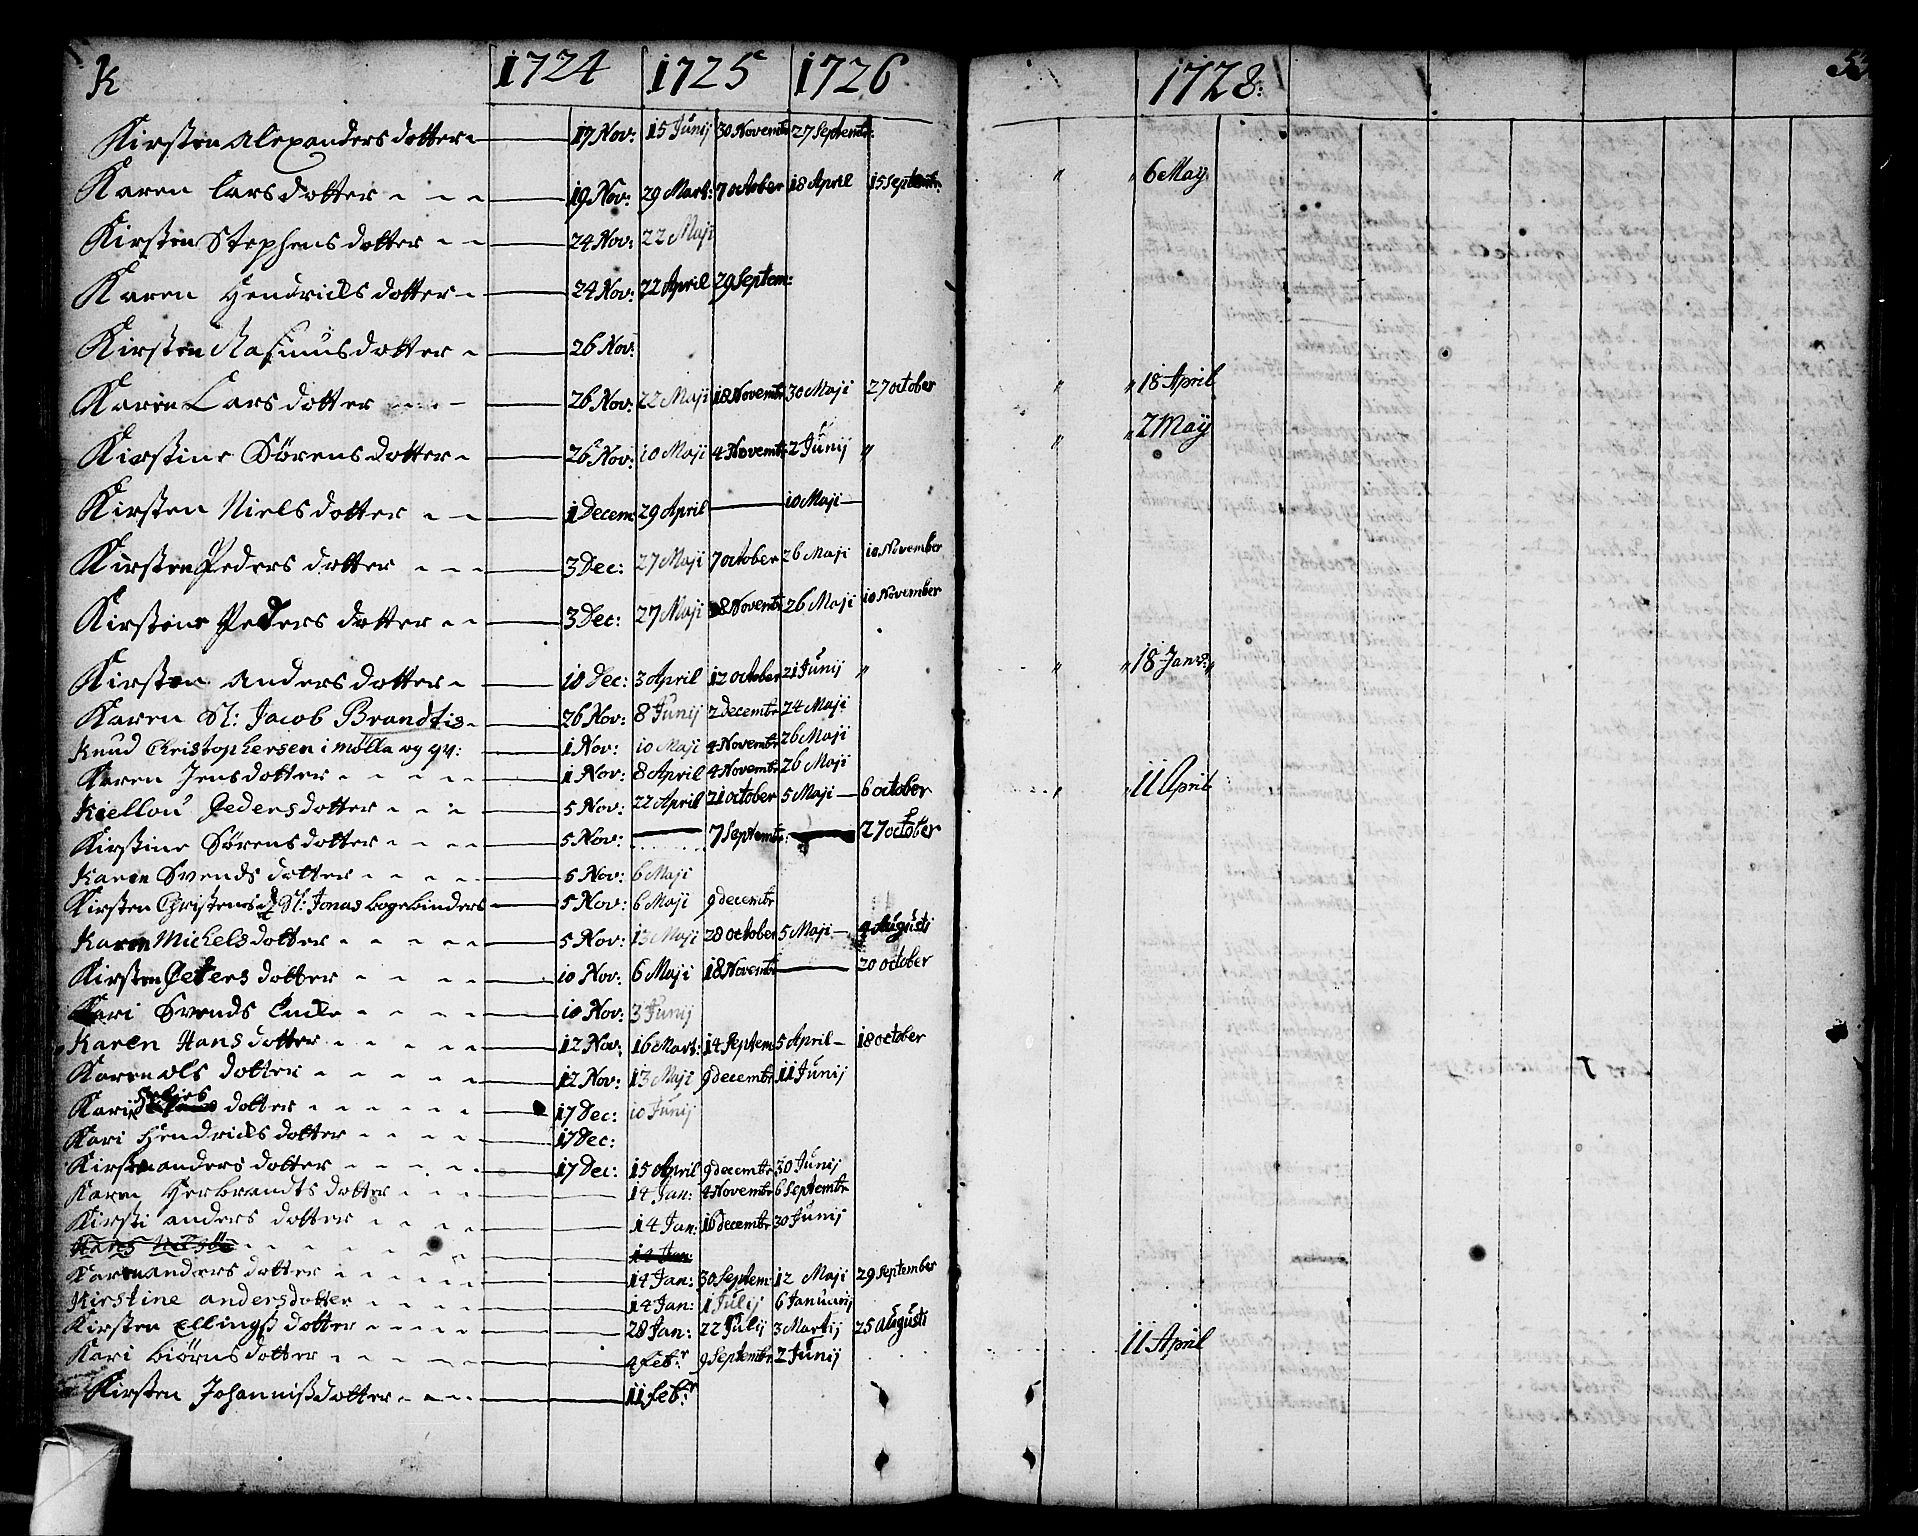 K 1724 1725 1726 1728.
Kirsten Alexanders dotter 17 Nov: 15 Junij 30 Novembr 27 Septembr:
Karen Lars dotter 19 Nov: 29 Mart: 7 october 18 April 15 Septembr: " " 6 Maij
Kirsten Stephens dotter 24 Nov: 22 Maji
Karen Hendricks dotter 24 Nov: 22 April 29 Septem:
Kirsten Rasmus dotter 26 Nov:
Karen Lars dotter 26 Nov: 22 Maji 18 Novembr 30 Maji 27 october " " 18 April
Kirstine Sørens dotter 26 Nov: 10 Maji 4 Novembr 2 Junij " " " 2 Maij
Kirsten Niels dotter 1 Decem 29 April — 10 Maji —
Kirsten Peders dotter 3 Dec: 27 Maji 7 october 26 Maji 10 November
Kirstene Peders dotter 3 Dec: 27 Maji 18 Novembr 26 Maji 10 November
Kirsten anders dotter 10 Dec: 3 April 12 october 21 Junij " " " 18 Janr: "
Karen Sl: Jacob Brandtis 26 Nov: 8 Junij 2 decembr 24 Maji
Knud Christophersen i mølla og qv: 1 Nov: 10 Maji 4 Novembr 26 Maji
Karen Jens dotter 1 Nov: 8 April 4 Novembr 26 Maji
Kiellou Peders dotter 5 Nov: 22 April 21 october 5 Maji — 6 october " " 11 April
Kirstine Sørens dotter 5 Nov: — 7 Septembr: — 27 october
Karen Svends dotter 5 Nov: 6 Maji
Kirsten Christens d Sl: Jonas bogebinders 5 Nov: 6 Maji 9 decembr
Karen Michels dotter 5 Nov: 13 Maji 28 october 5 Maji — 4 Augusti
Kirsten Peters dotter 10 Nov: 6 Maji 18 Novembr — 20 october
Kari Svends 10 Nov: 3 Junij
Karen Hans dotter 12 Nov: 16 Mart: 14 Septem 5 April — 18 october
Karen ols dotter 12 Nov: 13 Maji 9 decembr 11 Junij
Kari dotter 17 Dec: 10 Junij
Kari Hendricks dotter 17 Dec:
Kirsten anders dotter 17 Dec: 15 April 9 decembr 30 Junij
Karen Herbrandts dotter 14 Jan: 4 Novembr 6 Septembr
Kirsti anders dotter 14 Jan: 16 decembr 30 Junij
14 Jan:
Karen anders dotter 14 Jan: 30 Septem 12 Maji 29 September
Kirstine anders dotter 14 Jan: 1 Julij 6 Januarij
Kirsten Ellingß dotter 28 Jan: 22 Julij 3 Martij 25 Augusti 11 April
Kari biørns dotter 4 febr: 9 Septembr 2 Junij
Kirsten Johannißdotter 11 febr: